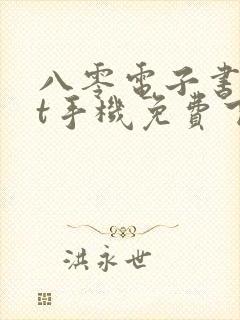 八零電子書
t手機免費
洪永世